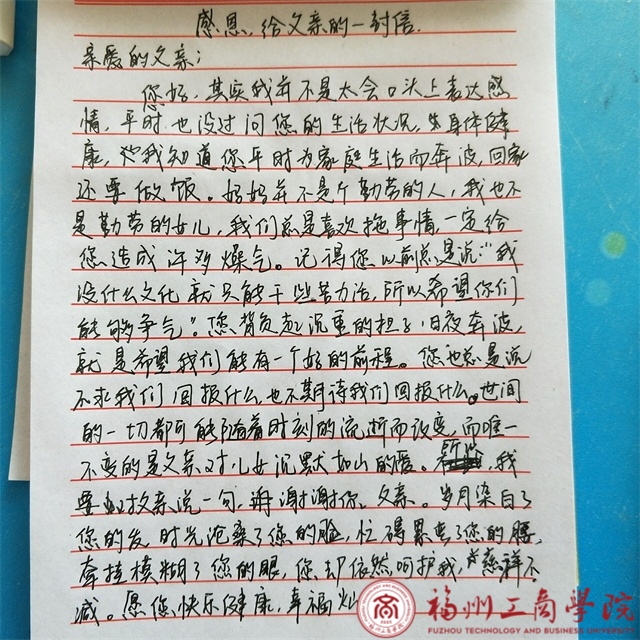 感恩,给父亲的一封信.
亲爱的父亲:
您好,其实我并不是太会口头上表达感
情,平时也没过问您的生活状况,身体健
康,我知道您平时为家庭生活而奔波,回家
还要做饭。妈妈并不是个勤劳的人,我也不
是勤劳的女儿,我们总是喜欢拖事情,一定给
您造成许多燥气。记得您以前总是说:"我
没什么文化就只能干些苦力活,所以希望你们
能够争气"。您背负起沉重的担子日夜奔波,
就是希望我们能有一个好的前程。您也总是说
不求我们回报什么,也不期待我们回报什么。世间
的一切都可能随着时刻的流逝而改变,而唯一
不变的是父亲对儿女沉默如山的爱。我
要对父亲说一句,谢谢你,父亲。岁月染白了
您的发,时光沧桑了您的脸,忙碌累弯了您的腰,
牵挂模糊了您的眼,您却依然呵护我,慈祥不
减。愿您快乐健康,幸福
福州工商学院
FUZHOU TECHNOLOGY AND BUSINESS UNIVERSITY